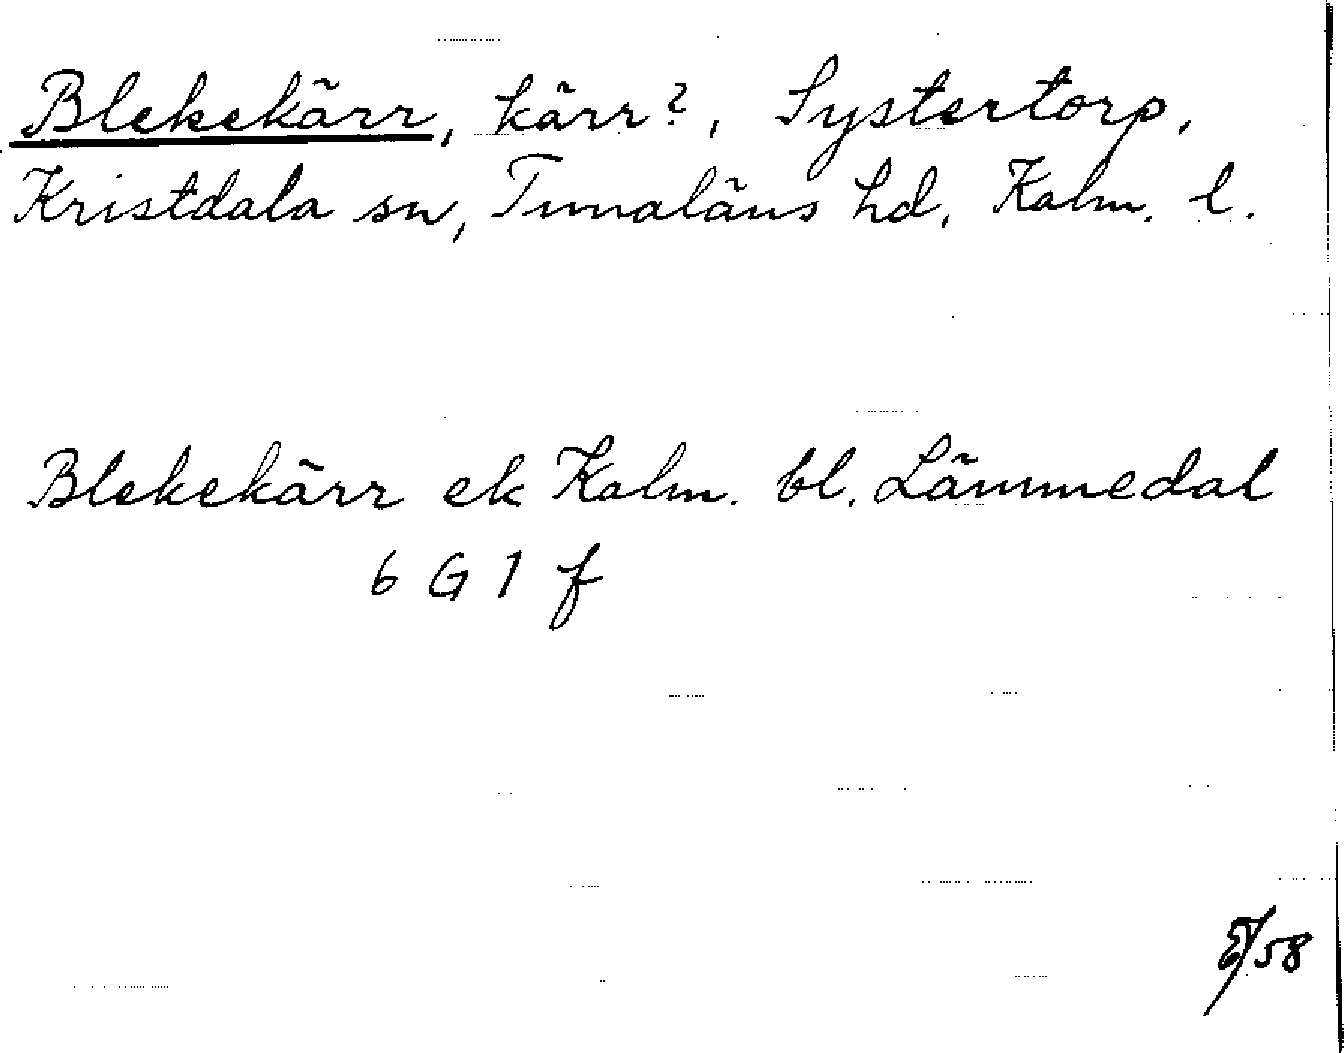 Blekekärr, kärr?, Systertorp,
Kristdala sn, Tunaläns hd, Kalm. l.
Blekekärr ek Kalm. bl. Lämmedal
6 G 1 f
58